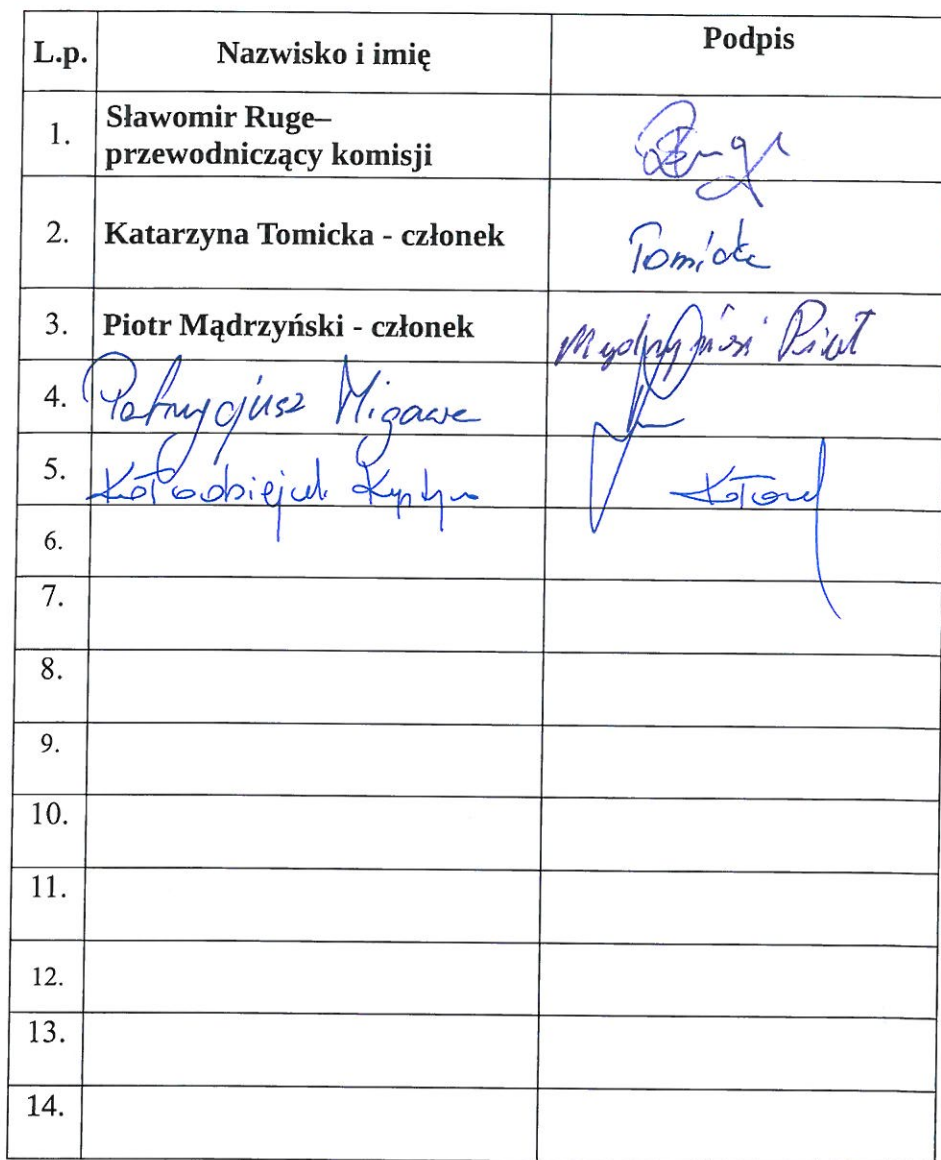 L.p. Nazwisko i imię Podpis
1. Sławomir Ruge–
przewodniczący komisji
2. Katarzyna Tomicka - członek Tomicka
3. Piotr Mądrzyński - członek Mądrzyński Piotr
4. Patrycjusz Migawa
5. Kołodziejczak Krystyna
6.
7.
8.
9.
10.
11.
12.
13.
14.